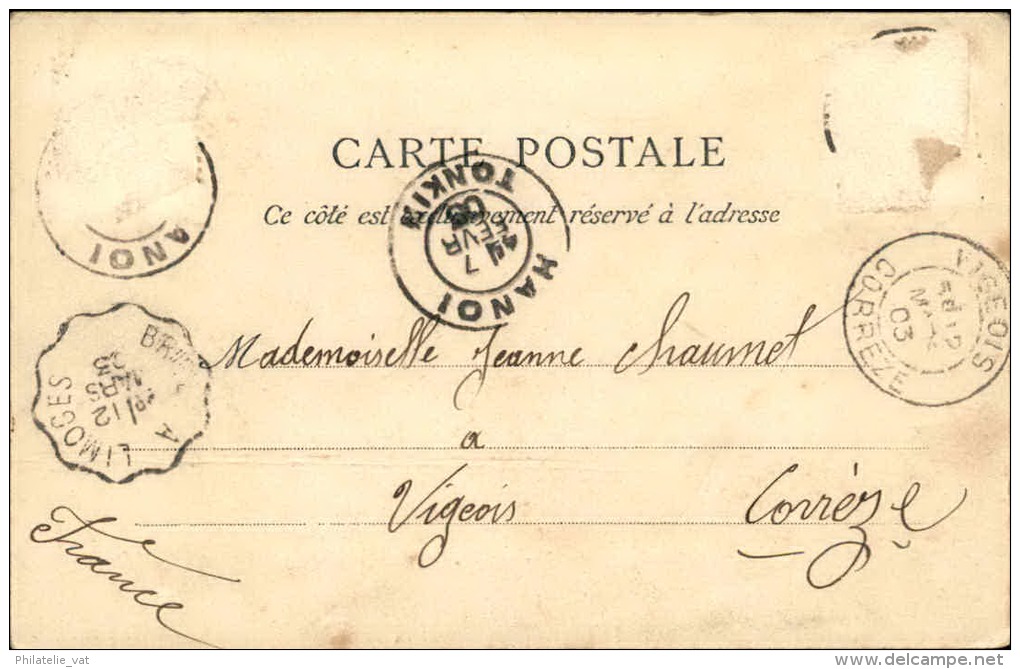 CARTE POSTALE
Ce côté est exclusivement réservé à l'adresse
HANOI
TONKIN
7
FEVR
03
ANOI
VIGEOIS
CORREZE
12
03
LIMOGES
A
12
MARS
03
Mademoiselle Jeanne Chaumet
a
Vigeois Corrèze
France
Philatelie_vat
delcampe.net